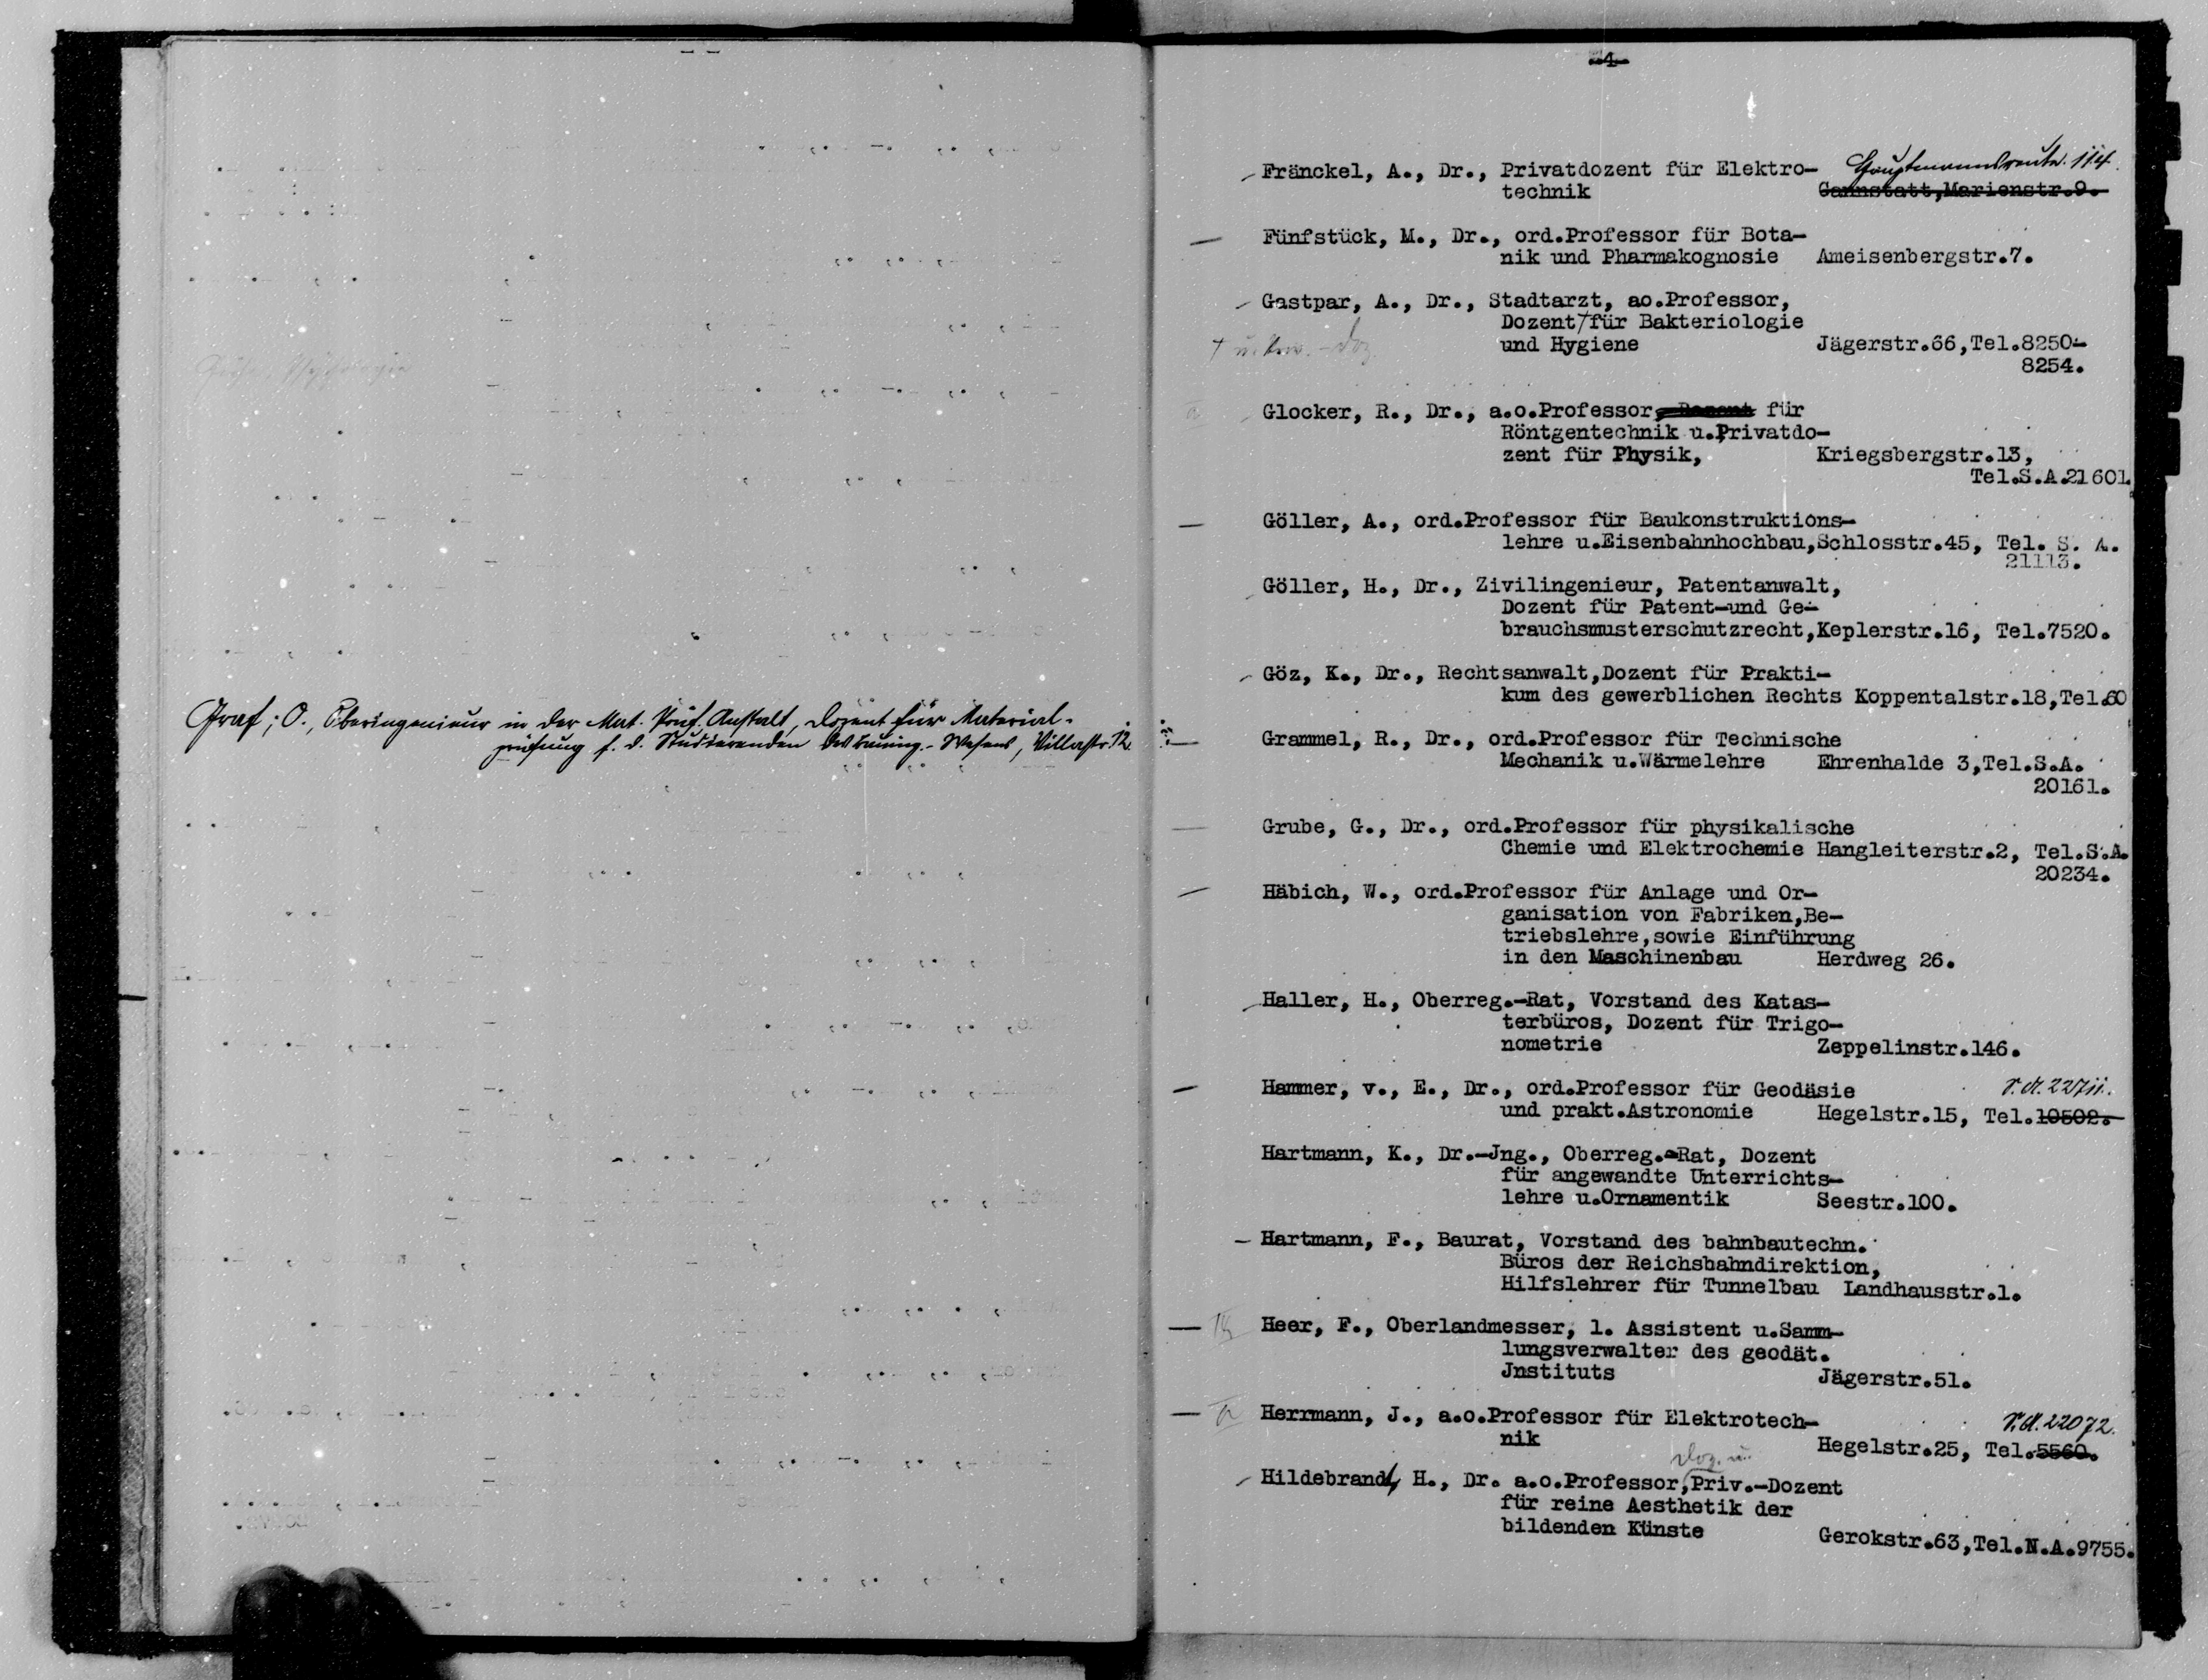 Graf, O., Oberingenieur in der Mat. Prüf. Anstalt, Dozent für Material-
prüfung f. d. Studierenden des Bauing.-Wesens, Villastr. 12.
-4-
Fränckel, A., Dr., Privatdozent für Elektro- Hauptmannsreute 114.
technik Cannstatt,Marienstr.9.
Fünfstück, M., Dr., ord.Professor für Bota-
nik und Pharmakognosie Ameisenbergstr.7.
Gastpar, A., Dr., Stadtarzt, ao.Professor,
Dozent für Bakteriologie
und Hygiene Jägerstr.66,Tel.8250-
8254.
Glocker, R., Dr., a.o.Professor, Dozent für
Röntgentechnik u.Privatdo-
zent für Physik, Kriegsbergstr.13,
Tel.S.A.21601.
Göller, A., ord.Professor für Baukonstruktions-
lehre u.Eisenbahnhochbau,Schlosstr.45, Tel. S. A.
21113.
Göller, H., Dr., Zivilingenieur, Patentanwalt,
Dozent für Patent-und Ge-
brauchsmusterschutzrecht,Keplerstr.16, Tel.7520.
Göz, K., Dr., Rechtsanwalt,Dozent für Prakti-
kum des gewerblichen Rechts Koppentalstr.18,Tel.60
Grammel, R., Dr., ord.Professor für Technische
Mechanik u.Wärmelehre Ehrenhalde 3,Tel.S.A.
20161.
Grube, G., Dr., ord.Professor für physikalische
Chemie und Elektrochemie Hangleiterstr.2, Tel.S.A.
20234.
Häbich, W., ord.Professor für Anlage und Or-
ganisation von Fabriken,Be-
triebslehre,sowie Einführung
in den Maschinenbau Herdweg 26.
Haller, H., Oberreg.-Rat, Vorstand des Katas-
terbüros, Dozent für Trigo-
nometrie Zeppelinstr.146.
Hammer, v., E., Dr., ord.Professor für Geodäsie S.A. 22711.
und prakt.Astronomie Hegelstr.15, Tel.10502.
Hartmann, K., Dr.-Jng., Oberreg.-Rat, Dozent
für angewandte Unterrichts-
lehre u.Ornamentik Seestr.100.
Hartmann, F., Baurat, Vorstand des bahnbautechn.
Büros der Reichsbahndirektion,
Hilfslehrer für Tunnelbau Landhausstr.1.
Heer, F., Oberlandmesser, 1. Assistent u.Samm-
lungsverwalter des geodät.
Jnstituts Jägerstr.51.
Herrmann, J., a.o.Professor für Elektrotech- S.A. 22072.
nik Hegelstr.25, Tel.5560.
Doz. u.
Hildebrandt, H., Dr. a.o.Professor,Priv.-Dozent
für reine Aesthetik der
bildenden Künste Gerokstr.63,Tel.N.A.9755.